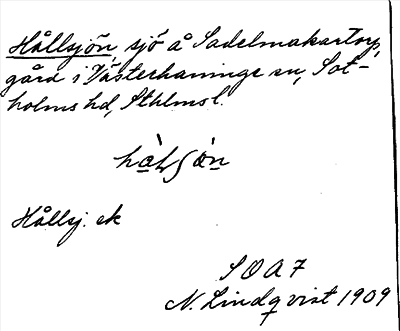 Hållsjön sjö å Sadelmakartorp,
gård i Västerhaninge sn, Sot-
holms hd, Sthlmsl.
Hållsj. ek
S O A 7
N. Lindqvist 1909